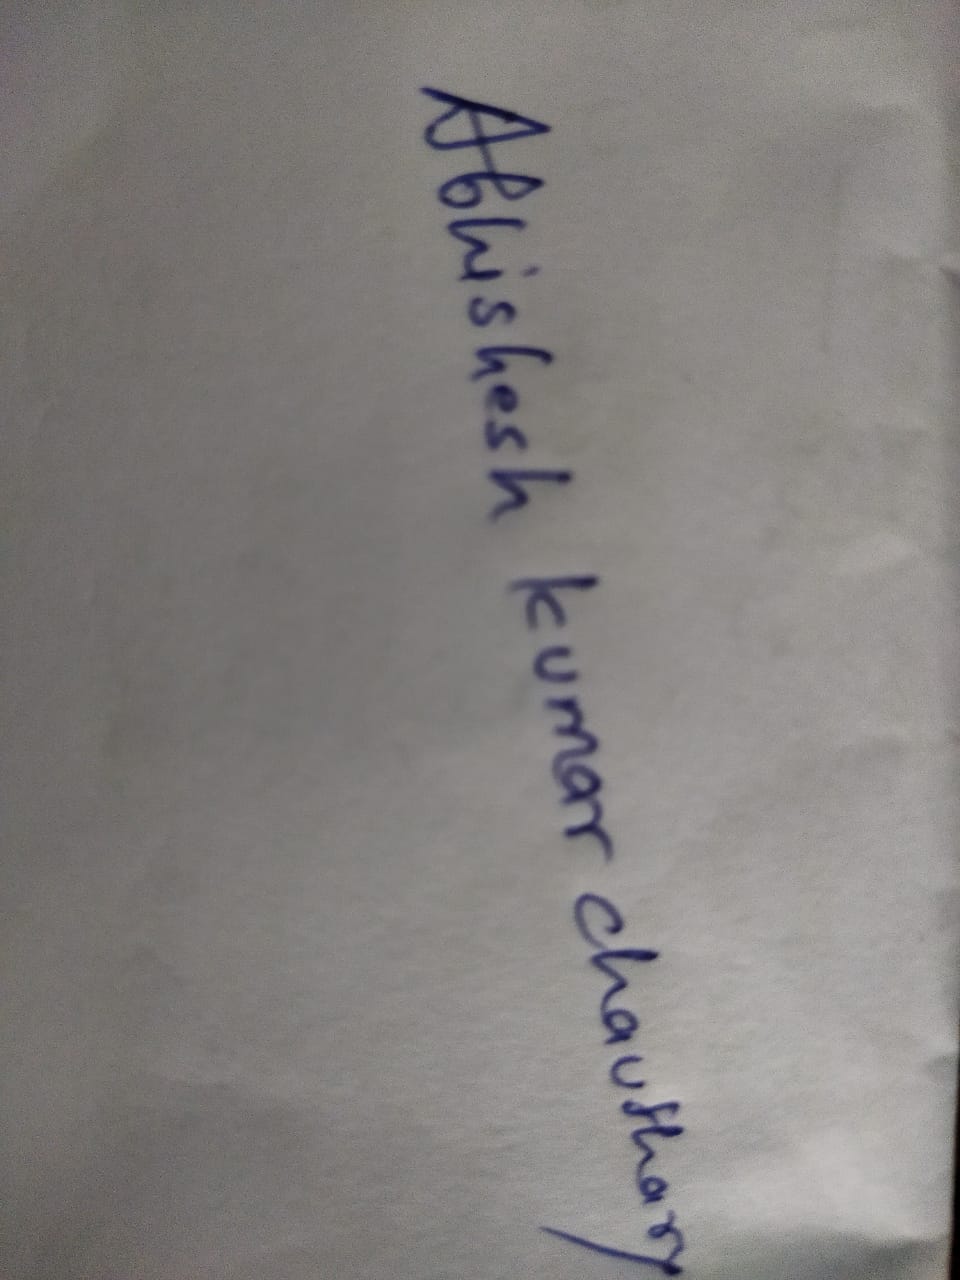 Abhishesh kumar chaudhary